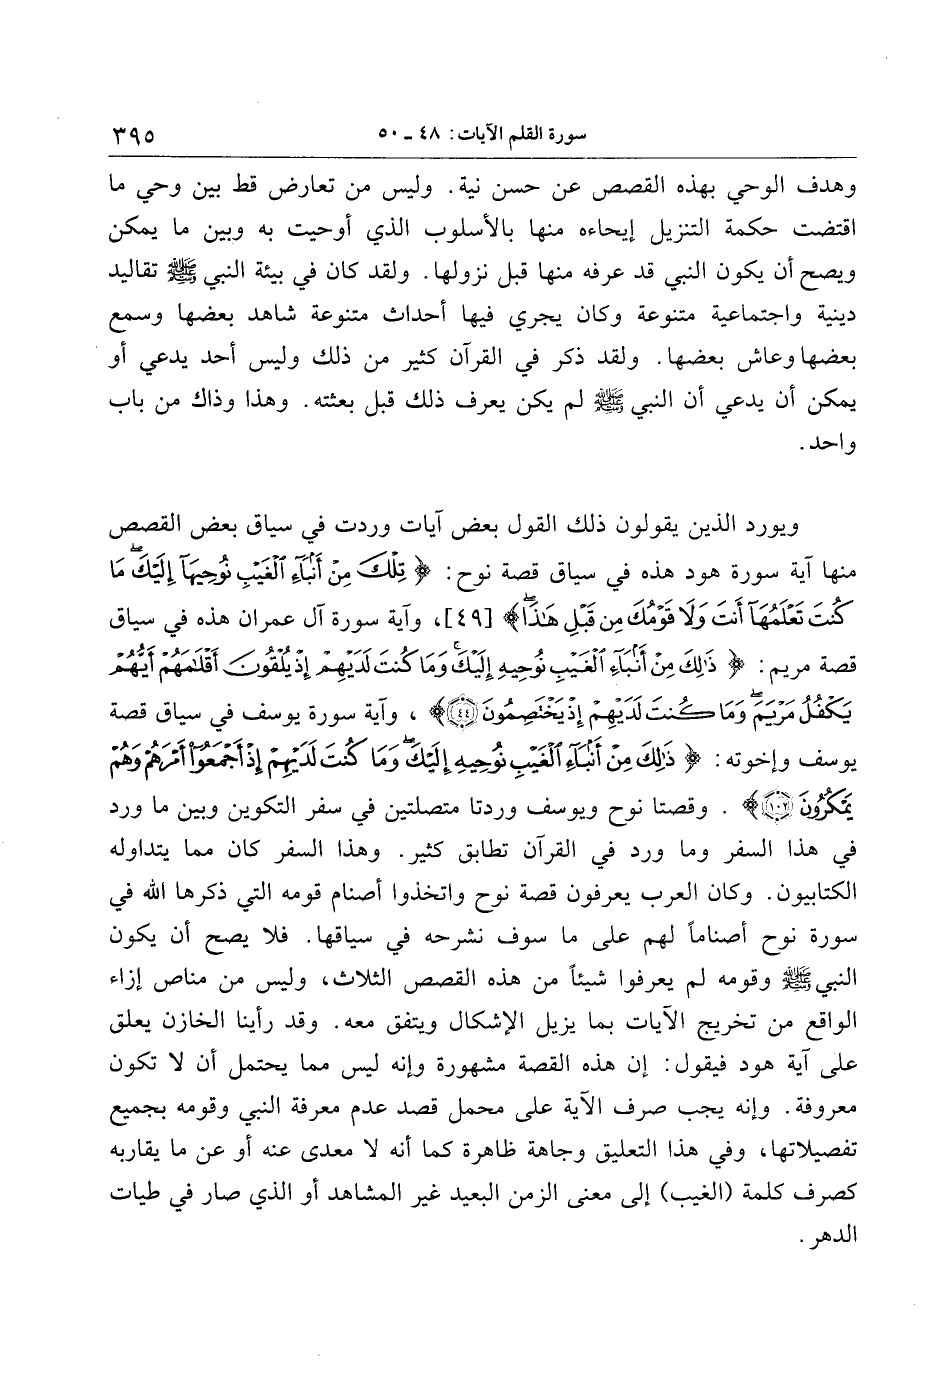 سورة القلم الآيات: ٤٨ ـ ٥٠ ٣٩٥
وهدف الوحي بهذه القصص عن حسن نية. وليس من تعارض قط بين وحي ما
اقتضت حكمة التنزيل إيحاءه منها بالأسلوب الذي أوحيت به وبين ما يمكن
ويصح أن يكون النبي قد عرفه منها قبل نزولها. ولقد كان في بيئة النبي ﷺ تقاليد
دينية واجتماعية متنوعة وكان يجري فيها أحداث متنوعة شاهد بعضها وسمع
بعضها وعاش بعضها. ولقد ذكر في القرآن كثير من ذلك وليس أحد يدعي أو
يمكن أن يدعي أن النبي ﷺ لم يكن يعرف ذلك قبل بعثته. وهذا وذاك من باب
واحد.
ويورد الذين يقولون ذلك القول بعض آيات وردت في سياق بعض القصص
منها آية سورة هود هذه في سياق قصة نوح: ﴿ تِلْكَ مِنْ أَنۢبَآءِ ٱلْغَيْبِ نُوحِيهَآ إِلَيْكَۖ مَا
كُنتَ تَعْلَمُهَآ أَنتَ وَلَا قَوْمُكَ مِن قَبْلِ هَٰذَاۖ﴾ [٤٩]، وآية سورة آل عمران هذه في سياق
قصة مريم: ﴿ ذَٰلِكَ مِنْ أَنۢبَآءِ ٱلْغَيْبِ نُوحِيهِ إِلَيْكَۚ وَمَا كُنتَ لَدَيْهِمْ إِذْ يُلْقُونَ أَقْلَٰمَهُمْ أَيُّهُمْ
يَكْفُلُ مَرْيَمَۖ وَمَا كُنتَ لَدَيْهِمْ إِذْ يَخْتَصِمُونَ ﴿٤٤﴾ ﴾ ، وآية سورة يوسف في سياق قصة
يوسف وإخوته: ﴿ ذَٰلِكَ مِنْ أَنۢبَآءِ ٱلْغَيْبِ نُوحِيهِ إِلَيْكَۖ وَمَا كُنتَ لَدَيْهِمْ إِذْ أَجْمَعُوٓا۟ أَمْرَهُمْ وَهُمْ
يَمْكُرُونَ ﴿١٠٢﴾ ﴾ . وقصتا نوح ويوسف وردتا متصلتين في سفر التكوين وبين ما ورد
في هذا السفر وما ورد في القرآن تطابق كثير. وهذا السفر كان مما يتداوله
الكتابيون. وكان العرب يعرفون قصة نوح واتخذوا أصنام قومه التي ذكرها الله في
سورة نوح أصناماً لهم على ما سوف نشرحه في سياقها. فلا يصح أن يكون
النبي ﷺ وقومه لم يعرفوا شيئاً من هذه القصص الثلاث، وليس من مناص إزاء
الواقع من تخريج الآيات بما يزيل الإشكال ويتفق معه. وقد رأينا الخازن يعلق
على آية هود فيقول: إن هذه القصة مشهورة وإنه ليس مما يحتمل أن لا تكون
معروفة. وإنه يجب صرف الآية على محمل قصد عدم معرفة النبي وقومه بجميع
تفصيلاتها، وفي هذا التعليق وجاهة ظاهرة كما أنه لا معدى عنه أو عن ما يقاربه
كصرف كلمة (الغيب) إلى معنى الزمن البعيد غير المشاهد أو الذي صار في طيات
الدهر.